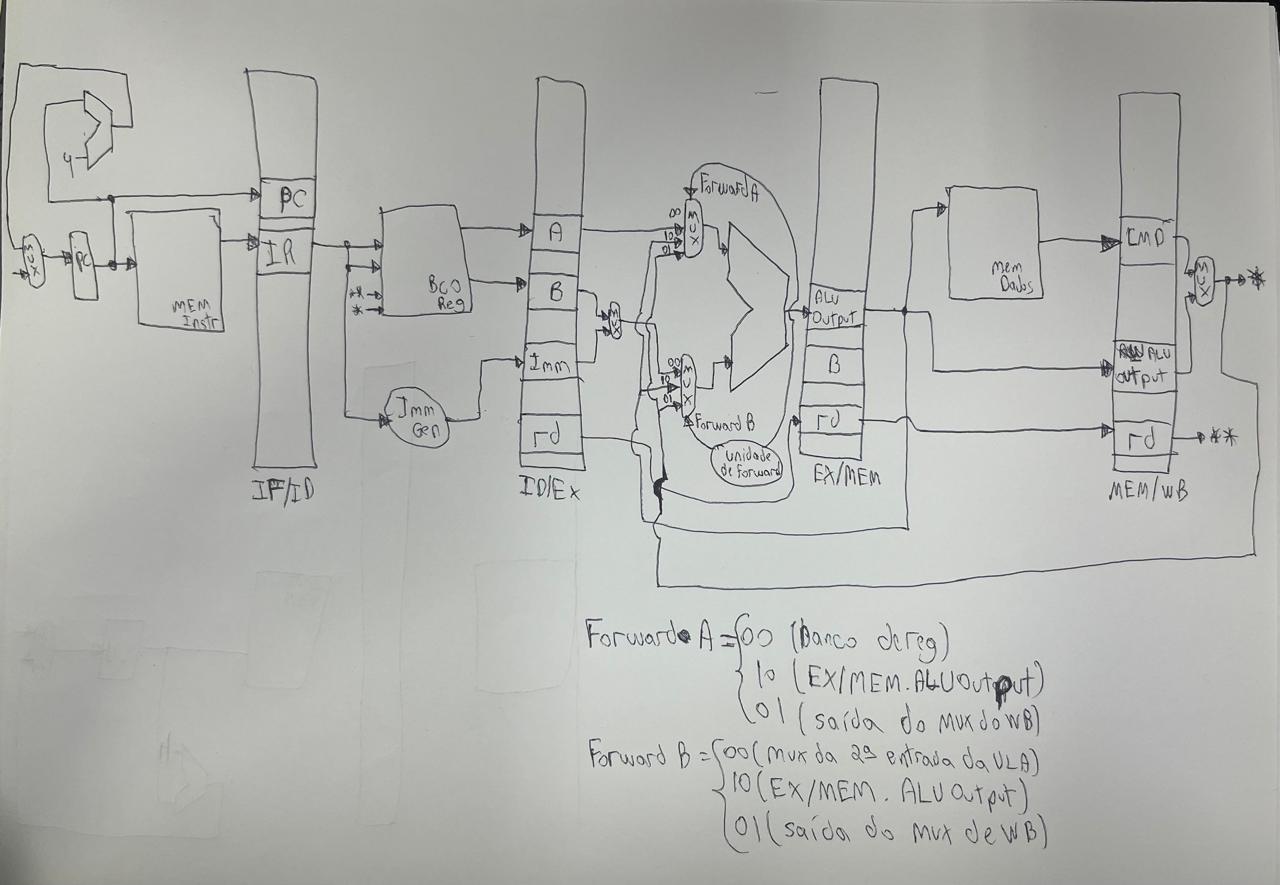 4
MUX
PC
MEM
Instr
PC
IR
IF/ID
**
*
BCO
Reg
Imm
Gen
A
B
Imm
rd
ID/EX
MUX
Forward A
00
10
01
MUX
00
10
01
MUX
Forward B
unidade
de Forward
ALU
Output
B
rd
EX/MEM
Mem
Dados
LMD
ALU
Output
rd
MEM/WB
MUX
*
**
Forward A = 00 (Banco de reg)
10 (EX/MEM.ALUOutput)
01 (saída do mux do WB)
Forward B = 00 (mux da 2ª entrada da ULA)
10 (EX/MEM. ALUOutput)
01 (saída do mux de WB)